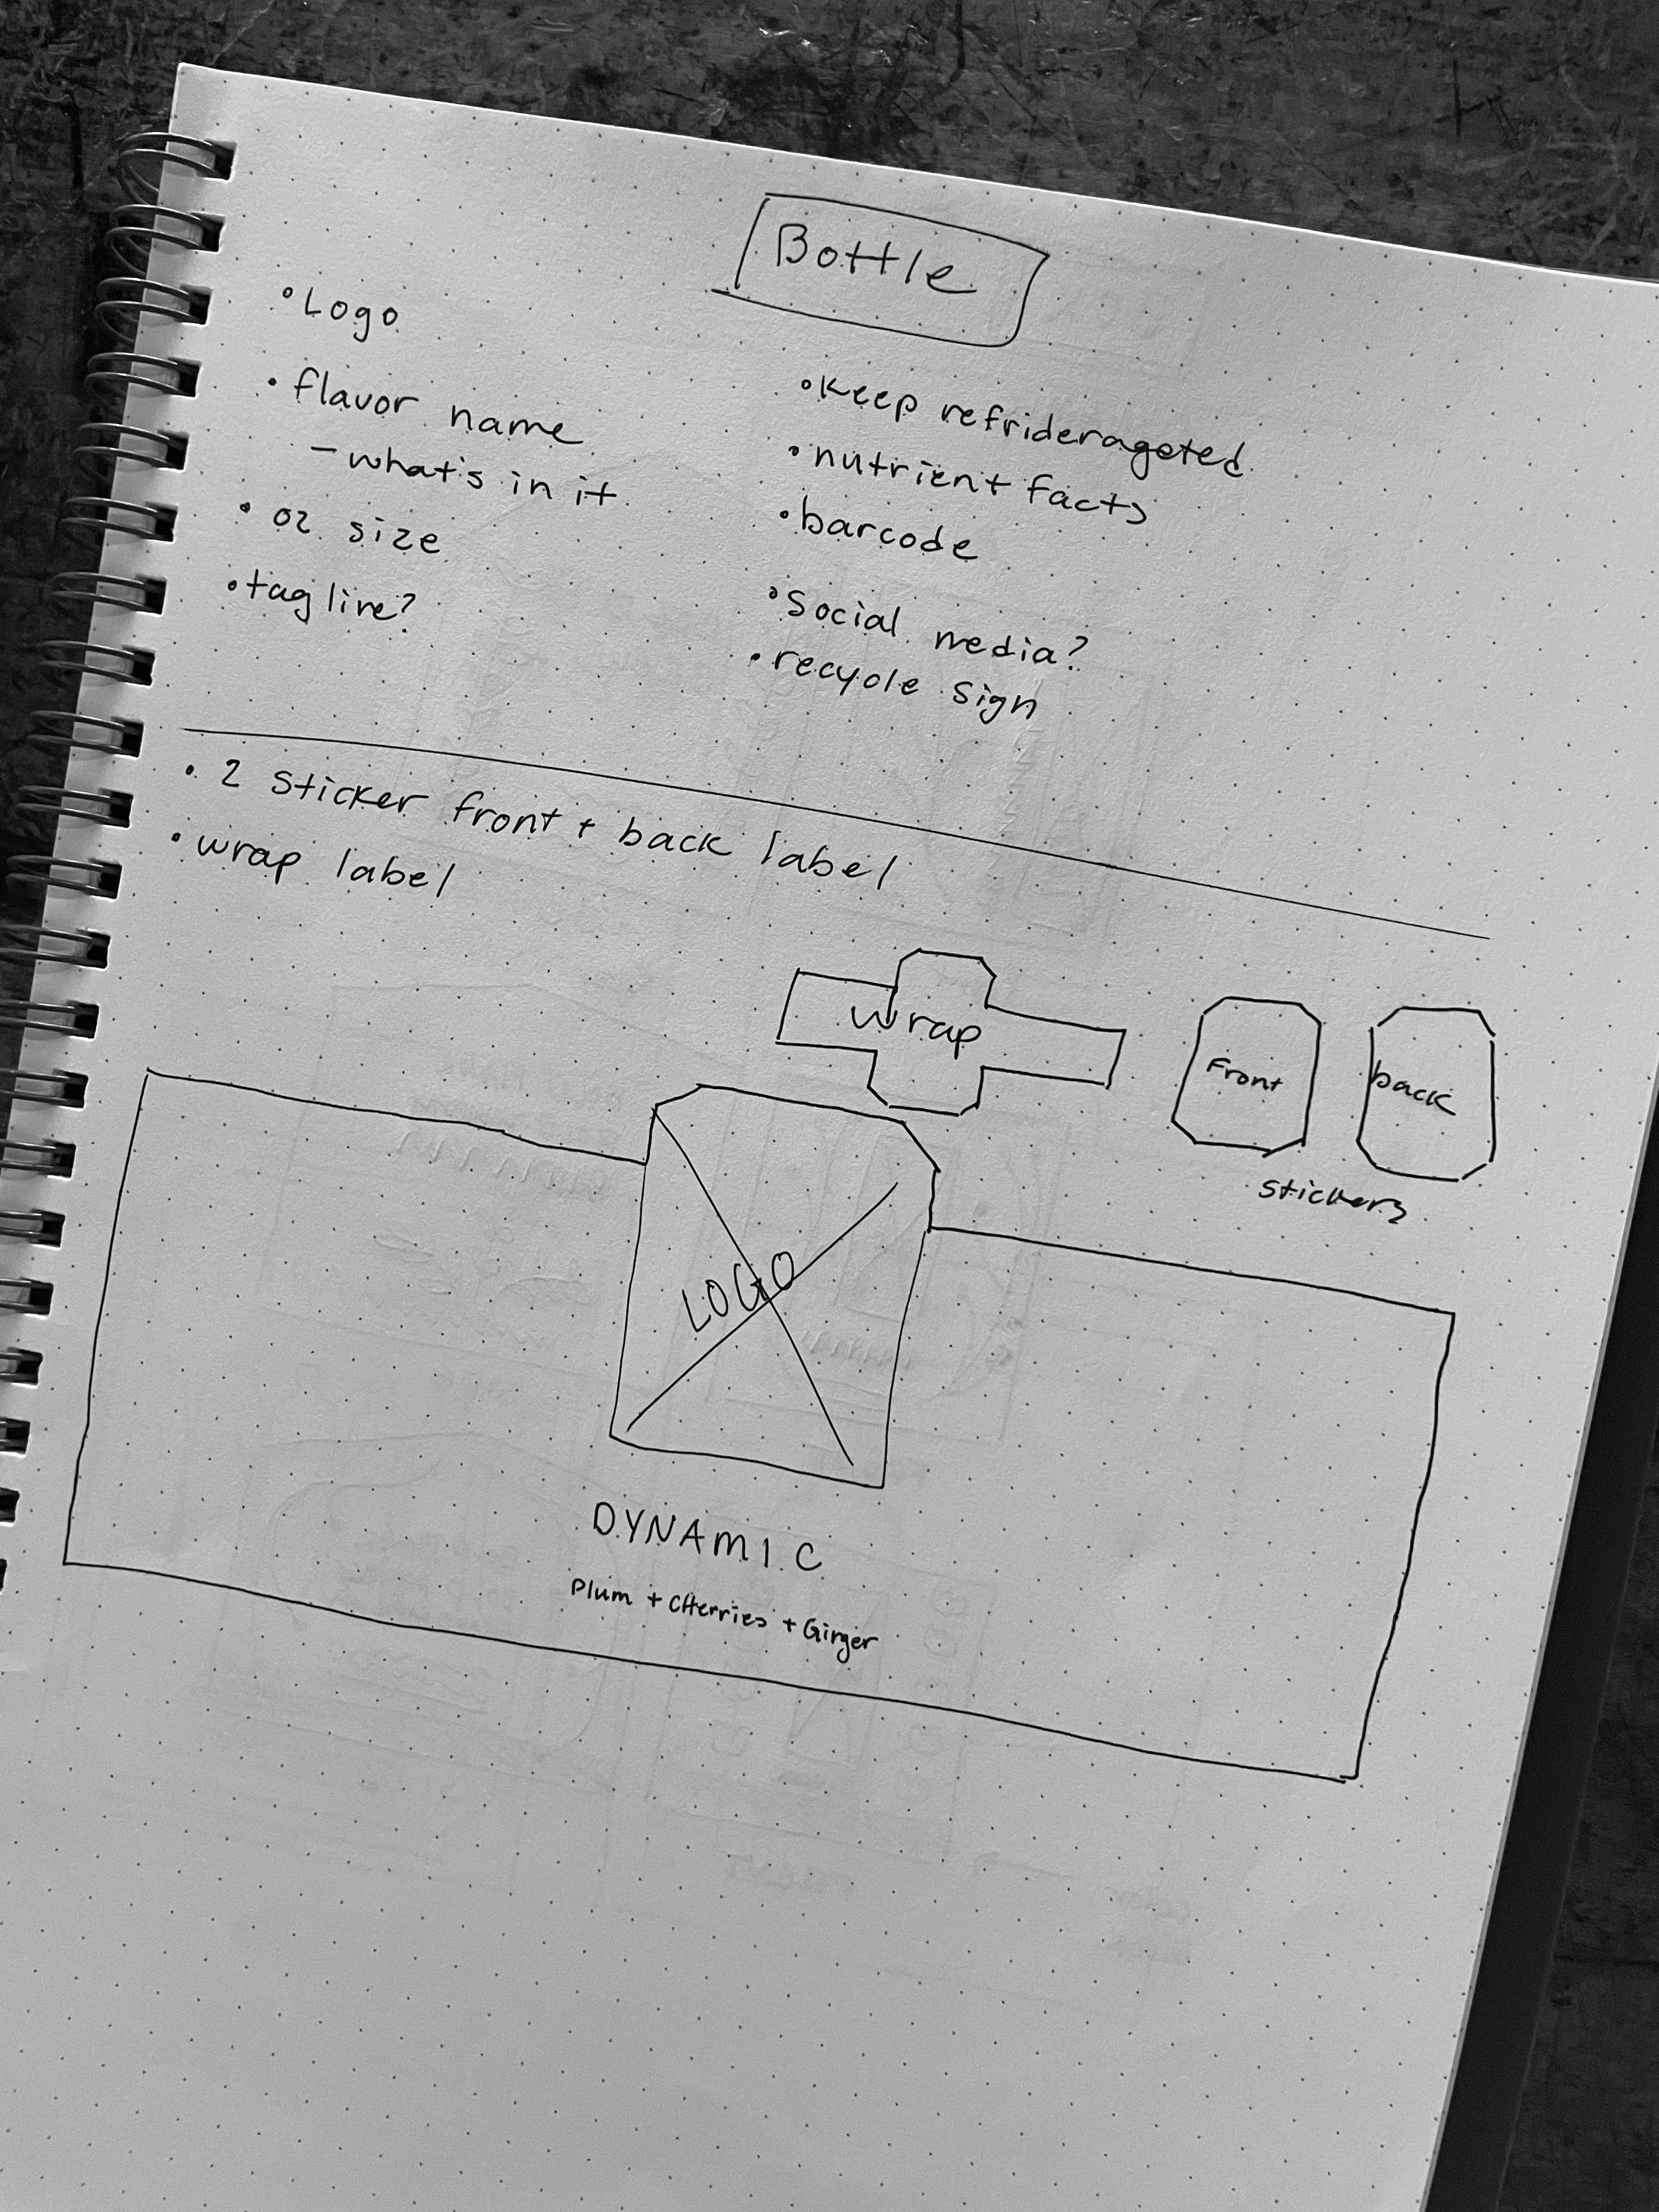 Bottle
• Logo
• flavor name
– what's in it
• oz size
• tag line?
• Keep refriderageted
• nutrient facts
• barcode
• Social media?
• recycle sign
• 2 sticker front + back label
• wrap label
wrap
Front
back
stickers
LOGO
DYNAMIC
Plum + CHerries + Ginger